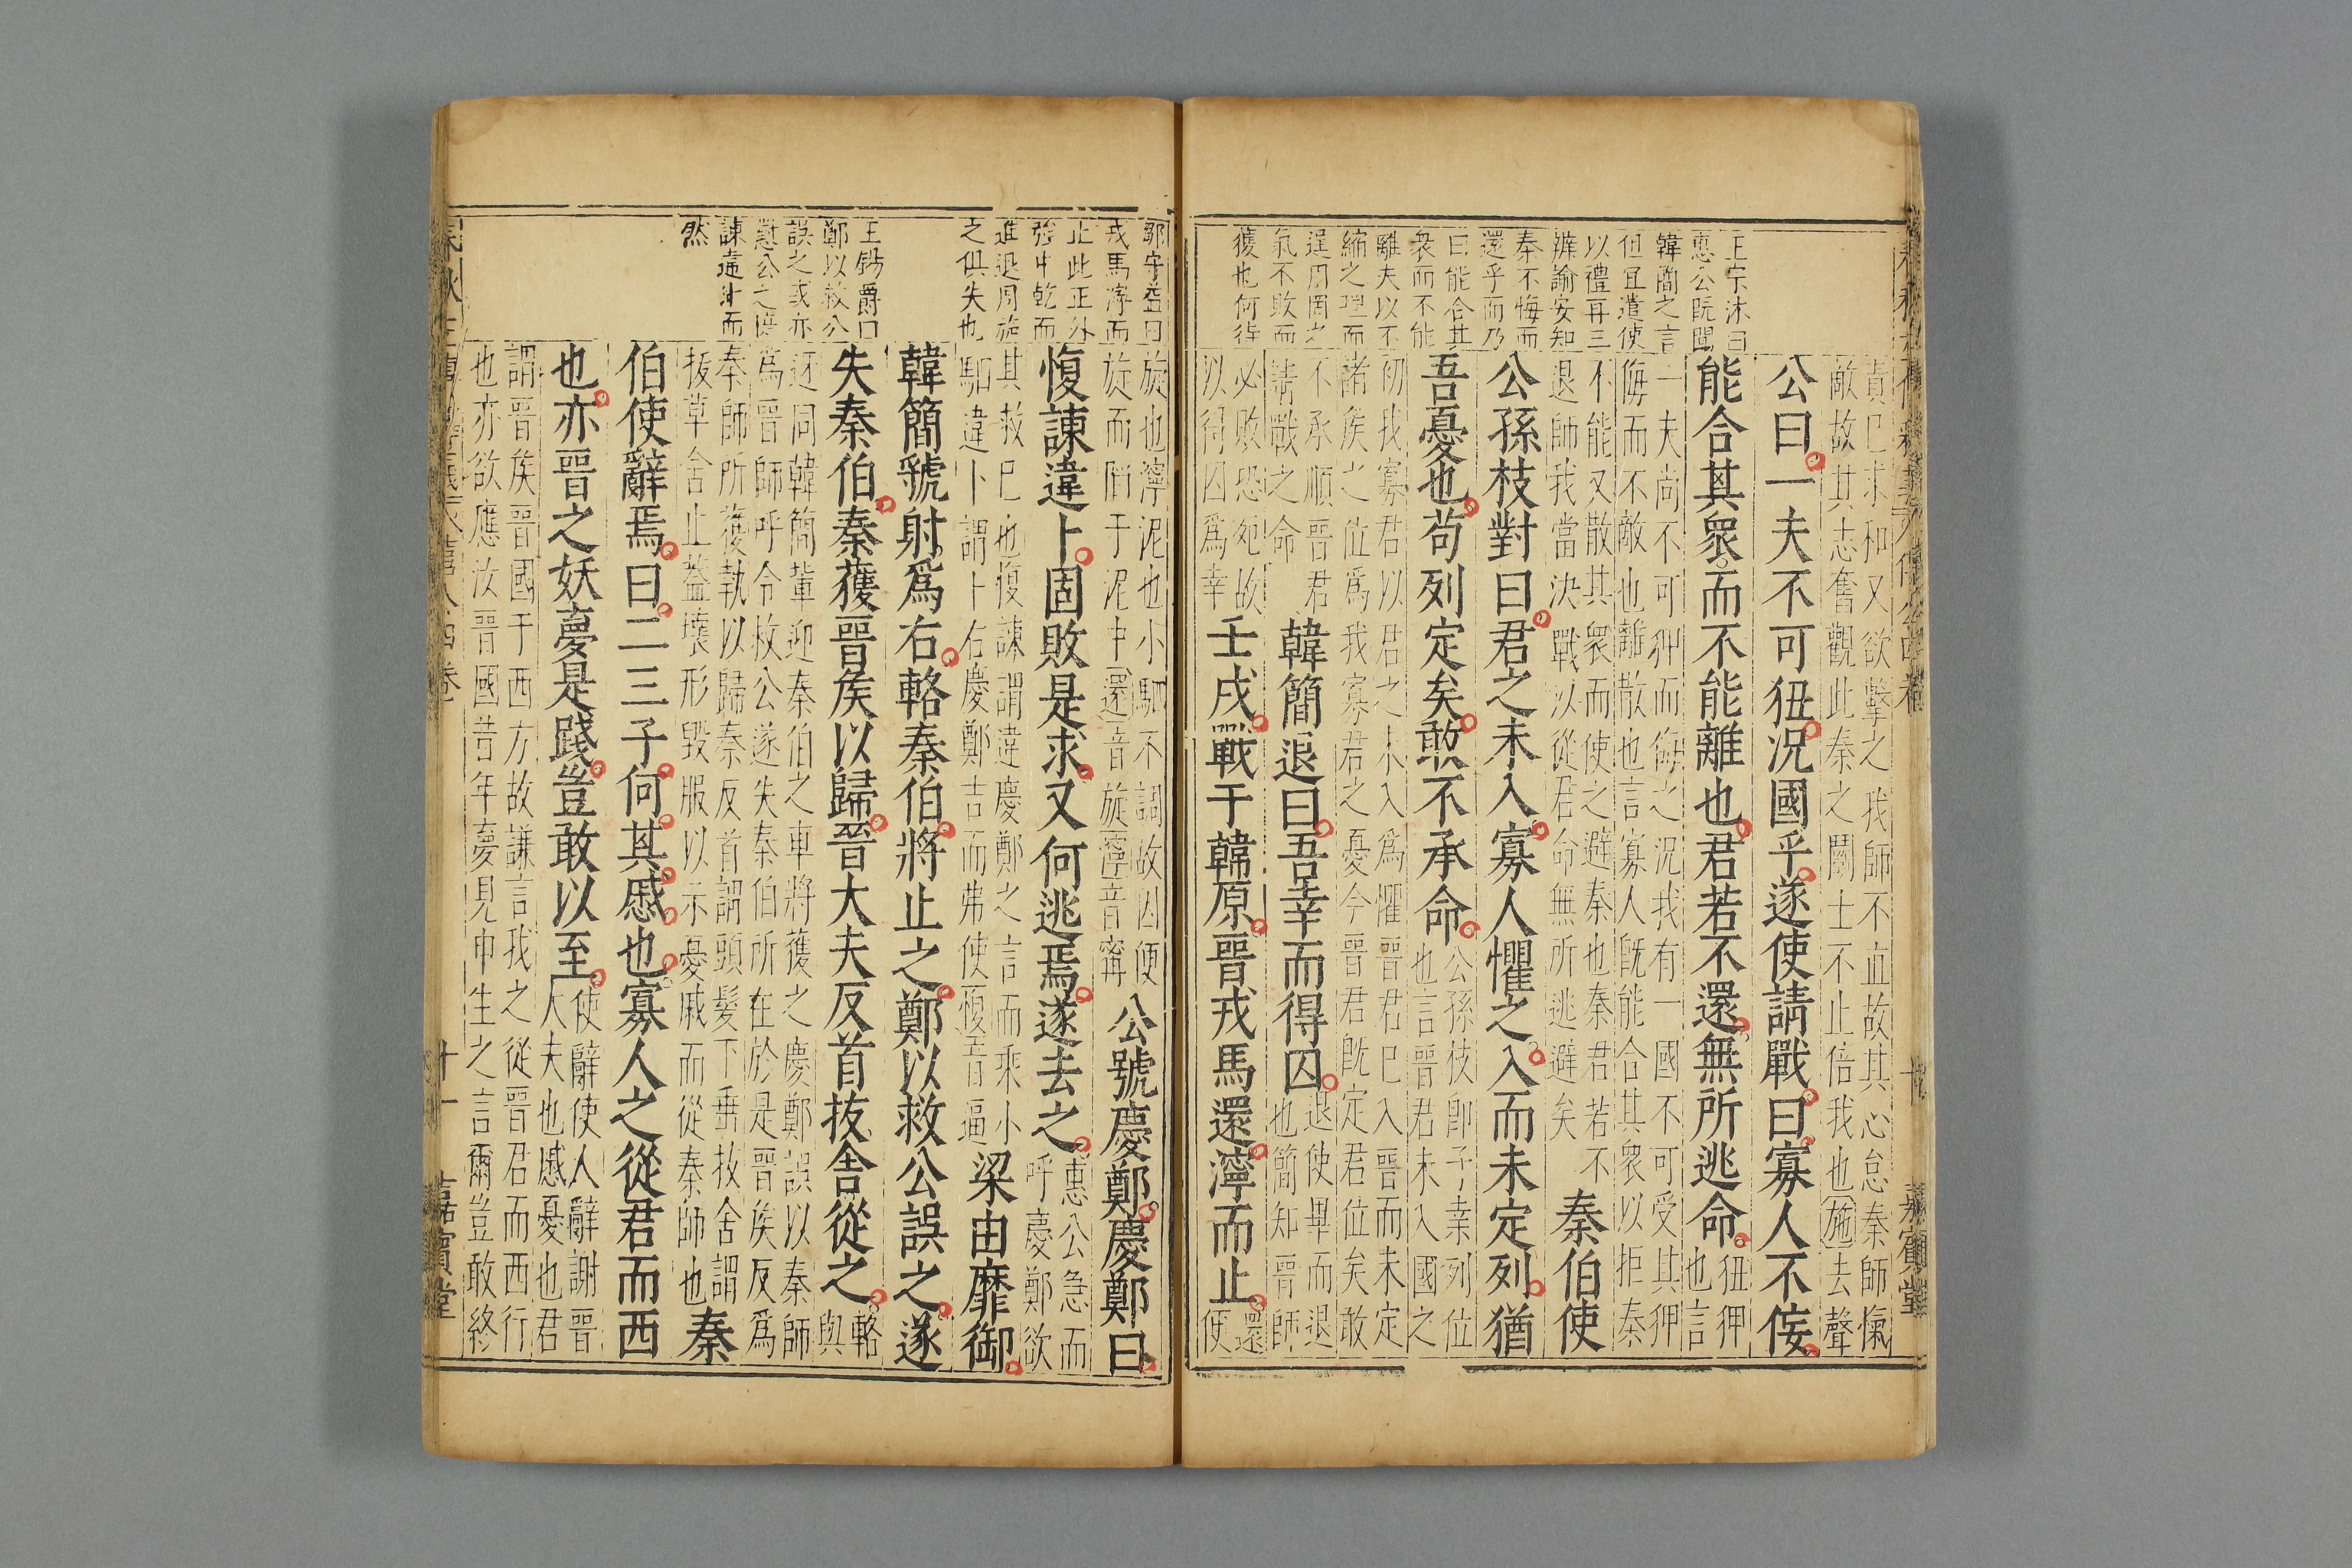 責已求和又欲擊之我師不直故其心怠秦師愾
敵故其志奮觀此秦之鬭士不止倍我也施去聲
公曰一夫不可狃況國乎遂使請戰曰寡人不佞
能合其衆而不能離也君若不還無所逃命
狃狎
也言
一夫尚不可狎而侮之況我有一國不可受其狎
侮而不敵也離散也言寡人旣能合其衆以拒秦
不能又散其衆而使之避秦也秦君若不
退師我當決戰以從君命無所逃避矣
秦伯使
公孫枝對曰君之未入寡人懼之入而未定列猶
吾憂也苟列定矣敢不承命
公孫枝卽子桒列位
也言晉君未入國之
初我寡君以君之未入爲懼晉君已入晉而未定
諸侯之位爲我寡君之憂今晉君旣定君位矣敢
不承順晉君
請戰之命
韓簡退曰吾幸而得囚
退使畢而退
也簡知晉師
必敗恐死故
以得囚爲幸
壬戌戰于韓原晉戎馬還濘而止
還
便
王宗沐曰
惠公旣聞
韓簡之言
但宜遣使
以禮再三
辨諭安知
秦不悔而
還乎而乃
曰能合其
衆而不能
離夫以不
縮之理而
逞周罔之
氣不敗而
獲也何待
旋也濘泥也小駟不調故因便
旋而陷于泥中還音旋濘音寗
公號慶鄭慶鄭曰
愎諫違卜固敗是求又何逃焉遂去之
惠公急而
呼慶鄭欲
其救已也愎諫謂違慶鄭之言而乘小
駟違卜謂卜右慶鄭吉而弗使愎音逼
梁由靡御
韓簡虢射爲右輅秦伯將止之鄭以救公誤之遂
失秦伯秦獲晉侯以歸晉大夫反首拔舍從之
輅
與
迓同韓簡輩迎秦伯之車將獲之慶鄭誤以秦師
爲晉師呼令救公遂失秦伯所在於是晉侯反爲
秦師所獲執以歸秦反首謂頭髮下垂拔舍謂
拔草舍止蓋壞形毀服以示憂戚而從秦師也
秦
伯使辭焉曰二三子何其慼也寡人之從君而西
也亦晉之妖夢是踐豈敢以至
使辭使人辭謝晉
大夫也慼憂也君
謂晉侯晉國于西方故謙言我之從晉君而西行
也亦欲應汝晉國昔年夢見申生之言爾豈敢終
鄒守益曰
戎馬濘而
止此正外
彊中乾而
進退周旋
之俱失也
王錫爵曰
鄭以救公
誤之或亦
懟公之愎
諫違卜而
然
十一
嘉賓堂